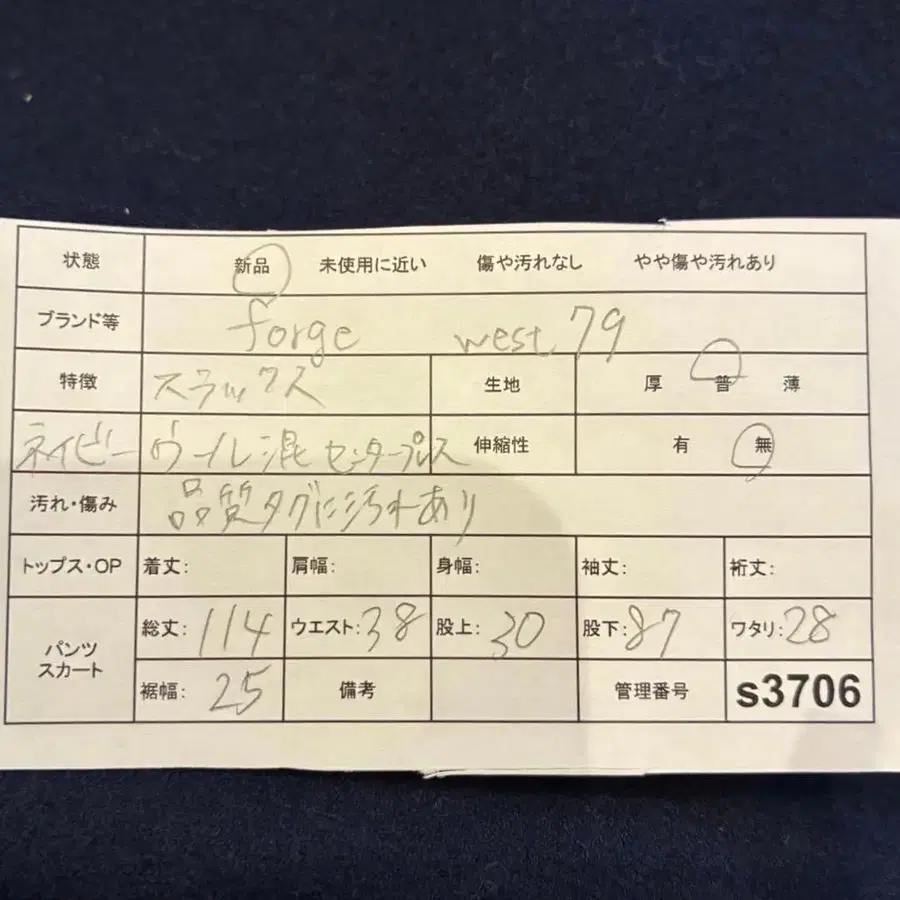 状態 新品 未使用に近い 傷や汚れなし やや傷や汚れあり
ブランド等 forge west 79
特徴 スラックス 生地 厚 普 薄
ネイビー ウール混 センタープレス 伸縮性 有 無
汚れ・傷み 品質タグに汚れあり
トップス・OP 着丈: 肩幅: 身幅: 袖丈: 裄丈:
パンツ スカート 総丈: 114 ウエスト: 38 股上: 30 股下: 87 ワタリ: 28
裾幅: 25 備考 管理番号 s3706